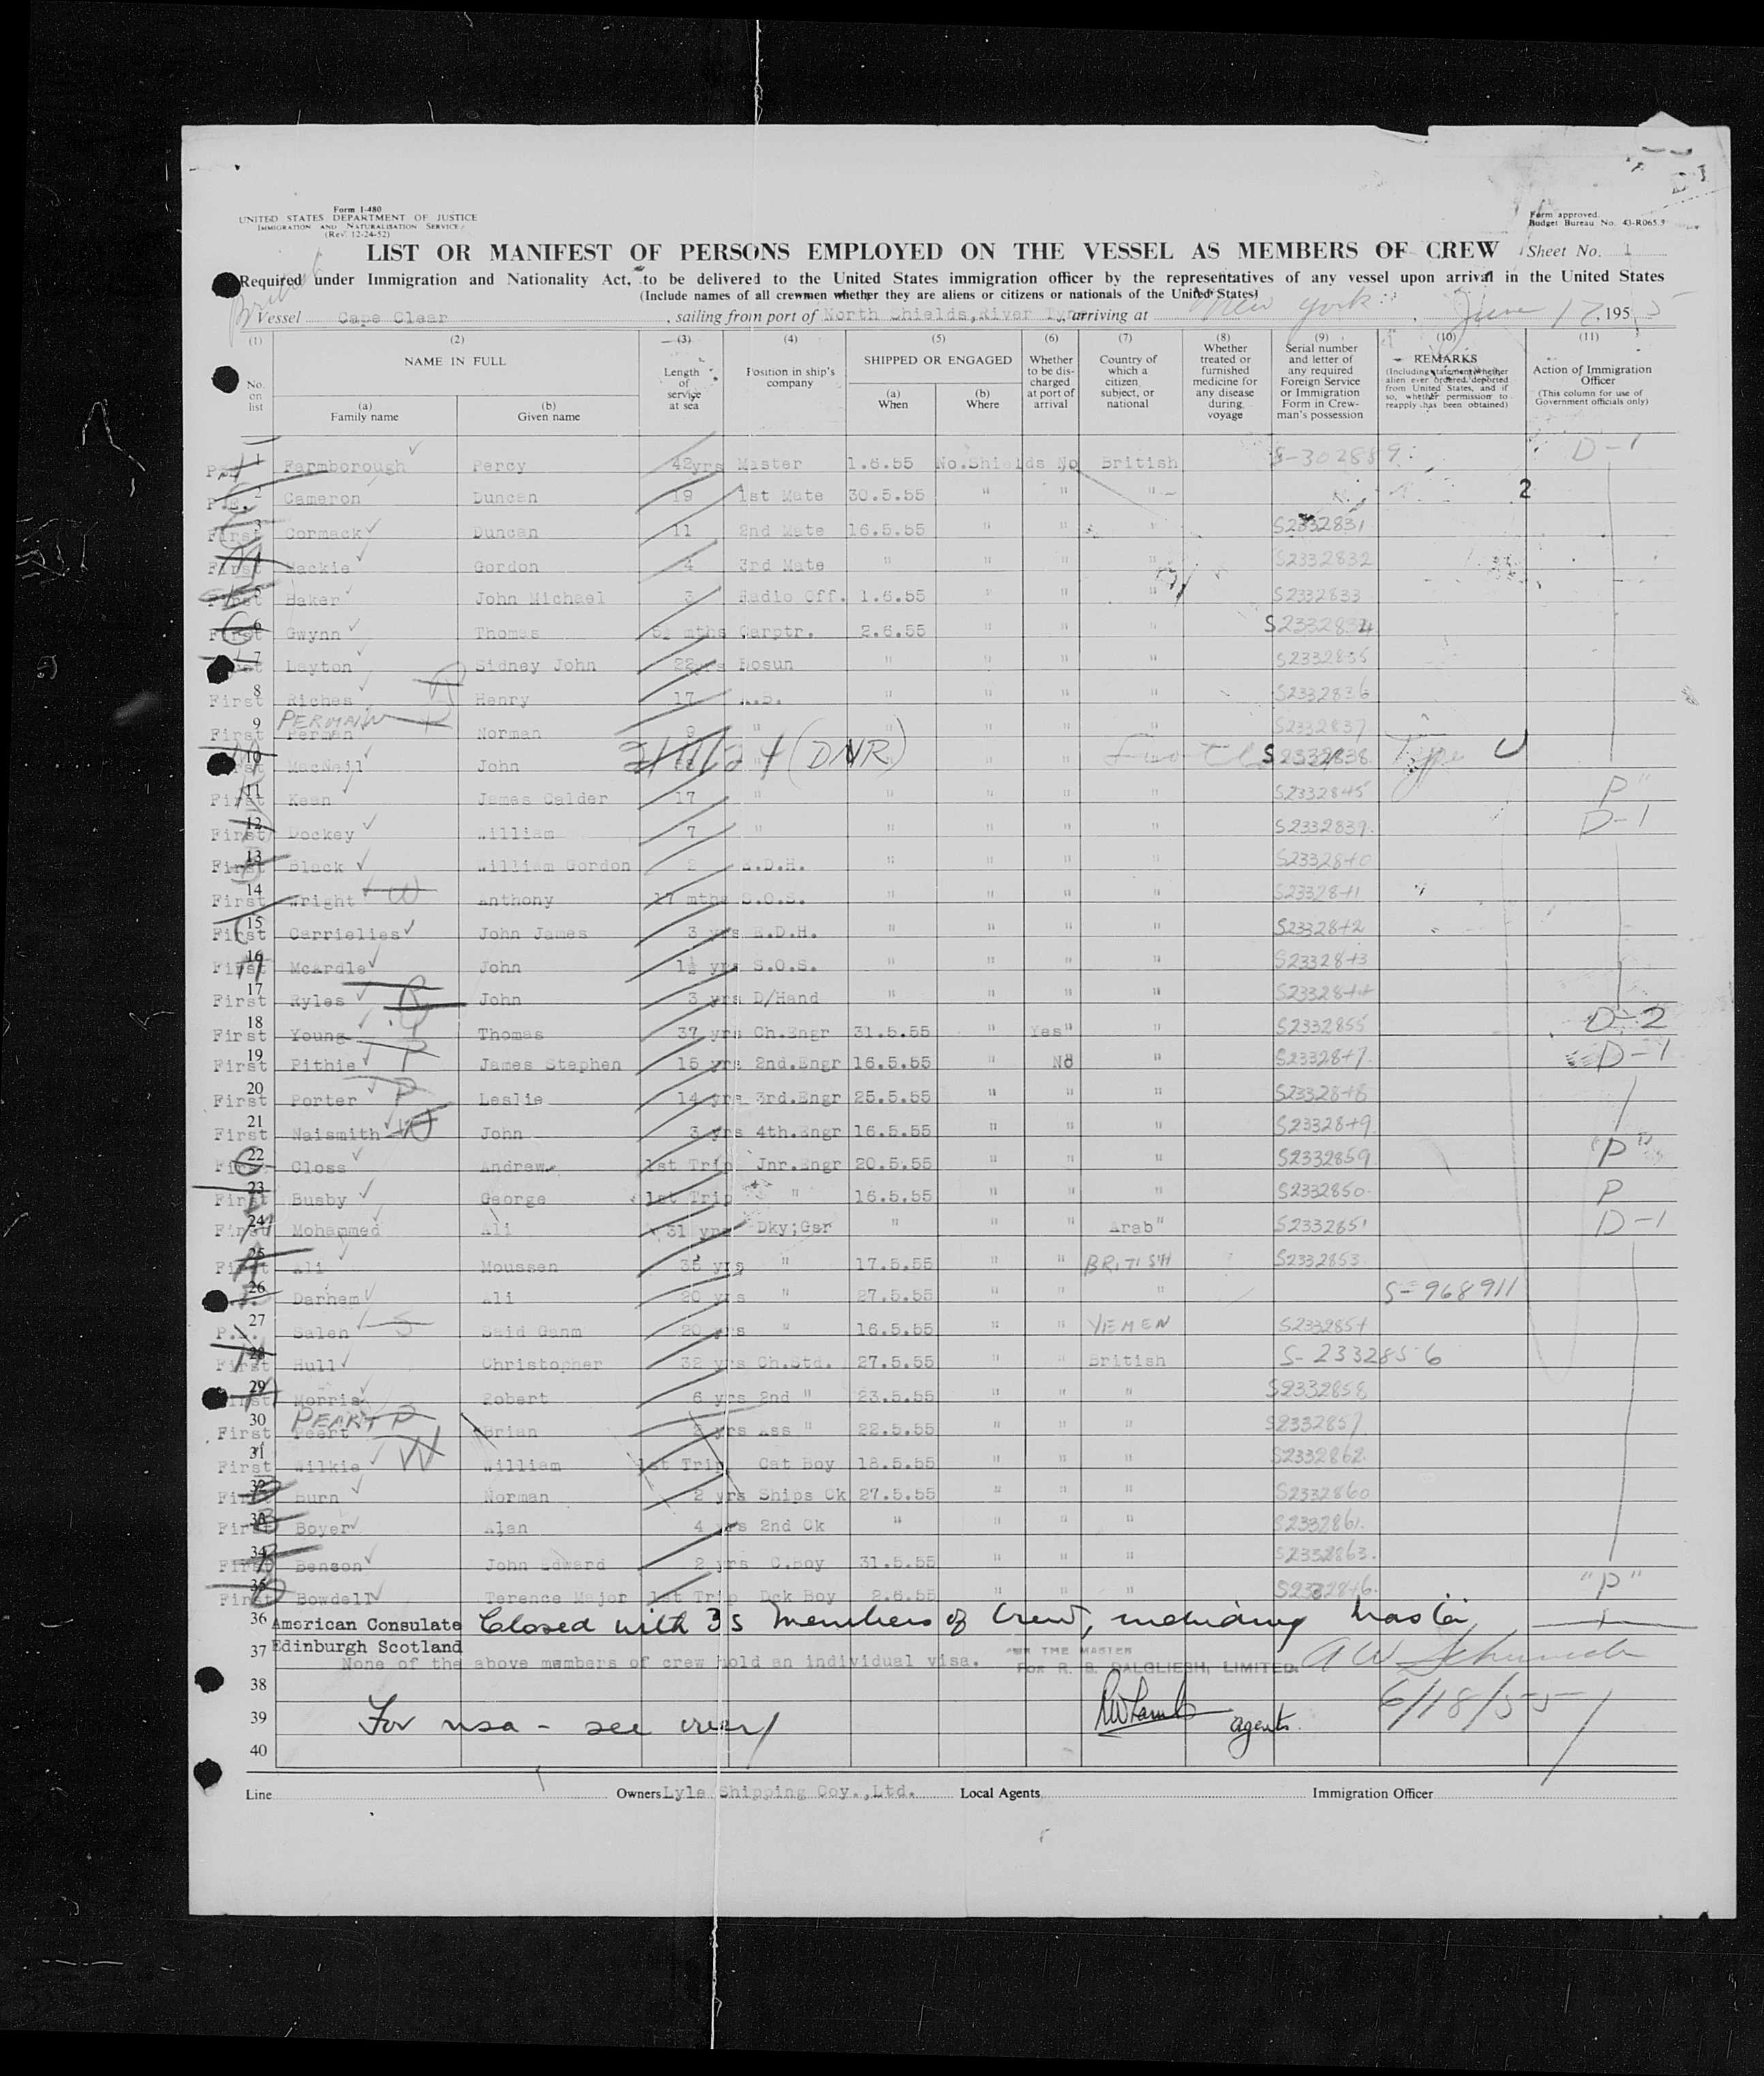 Form I-480
UNITED STATES DEPARTMENT OF JUSTICE
IMMIGRATION AND NATURALISATION SERVICE
(Rev. 12-24-52)
Form approved.
Budget Bureau No. 43-R065.9
LIST OR MANIFEST OF PERSONS EMPLOYED ON THE VESSEL AS MEMBERS OF CREW Sheet No. 1
Required under Immigration and Nationality Act, to be delivered to the United States immigration officer by the representatives of any vessel upon arrival in the United States
(Include names of all crewmen whether they are aliens or citizens or nationals of the United States)
Vessel Cape Clear, sailing from port of North Shields, River Tyne, arriving at New York June 17, 1955
(1) (2) (3) (4) (5) (6) (7) (8) (9) (10) (11)
No. on list
NAME IN FULL
(a) Family name
(b) Given name
Length of service at sea
Position in ship's company
SHIPPED OR ENGAGED
(a) When
(b) Where
Whether to be discharged at port of arrival
Country of which a citizen, subject, or national
Whether treated or furnished medicine for any disease during voyage
Serial number and letter of any required Foreign Service or Immigration Form in Crewman's possession
REMARKS
(Including statement whether alien ever ordered deported from United States, and if so, whether permission to reapply has been obtained)
Action of Immigration Officer
(This column for use of Government officials only)
1 Farmborough Percy 42yrs Master 1.6.55 No.Shields No British S-302889 D-1
P.S. 2 Cameron Duncan 19 1st Mate 30.5.55 " " " 2
First 3 Cormack Duncan 11 2nd Mate 16.5.55 " " " S2332831
First 4 Mackie Gordon 4 3rd Mate " " " " S2332832
First 5 Baker John Michael 3 Radio Off. 1.6.55 " " " S2332833
First 6 Gwynn Thomas mths Carptr. 2.6.55 " " " S2332834
First 7 Layton Sidney John 22yrs Bosun " " " " S2332835
First 8 Riches R Henry 17 A.B. " " " " S2332836
PERMAIN
First 9 Perman Norman 9 " " " " " S2332837
First 10 MacNeil John (DNR) " " S2332838 Type U
First 11 Kean James Calder 17 " " " " " S2332845 P"
First 12 Dockey William 7 " " " " " S2332839 D-1
First 13 Black William Gordon 2 E.D.H. " " " " S2332840
First 14 Wright W Anthony 17 mths S.O.S. " " " " S2332841
First 15 Carrielies John James 3 yrs E.D.H. " " " " S2332842
First 16 McArdle John 1½ yrs S.O.S. " " " " S2332843
First 17 Ryles R John 3 yrs D/Hand " " " " S2332844
First 18 Young Thomas 37 yrs Ch.Engr 31.5.55 " Yes" " S2332855 D-2
First 19 Pithie P James Stephen 15 yrs 2nd.Engr 16.5.55 " No " S2332847 D-1
First 20 Porter P Leslie 14 yrs 3rd.Engr 25.5.55 " " " S2332848
First 21 Naismith John 3 yrs 4th.Engr 16.5.55 " " " S2332849
First 22 Closs Andrew 1st Trip Jnr.Engr 20.5.55 " " " S2332859 "P"
First 23 Busby George 1st Trip " 16.5.55 " " " S2332850 P
First 24 Mohammed Ali 31 yrs Dky;Gsr " " " Arab" S2332851 D-1
First 25 Ali Moussen 35 yrs " 17.5.55 " " BRITISH S2332853
26 Darhem Ali 20 yrs " 27.5.55 " " " S-968911
P.S. 27 Saleh S Said Ganm 20 yrs " 16.5.55 " " YEMEN S2332854
First 28 Hull Christopher 32 yrs Ch.Std. 27.5.55 " " British S-2332856
First 29 Morris Robert 6 yrs 2nd " 23.5.55 " " " S2332858
PEART P
First 30 Peert Brian 2 yrs Ass " 22.5.55 " " " S2332857
First 31 Wilkie W William 1st Trip Cat Boy 18.5.55 " " " S2332862
First 32 Burn Norman 2 yrs Ships Ck 27.5.55 " " " S2332860
First 33 Boyer Alan 4 yrs 2nd Ck " " " " S2332861
First 34 Benson John Edward 2 yrs C.Boy 31.5.55 " " " S2332863
First 35 Bowdell Terence Major 1st Trip Dck Boy 2.6.55 " " " S2332846 "P"
36 American Consulate Closed with 35 members of Crew, including Master
37 Edinburgh Scotland
None of the above members of crew hold an individual visa.
FOR THE MASTER
FOR R. S. DALGLIESH, LIMITED.
38
39 For visa - see over
agents.
6/18/55
40
Line Owners Lyle Shipping Coy.,Ltd. Local Agents Immigration Officer